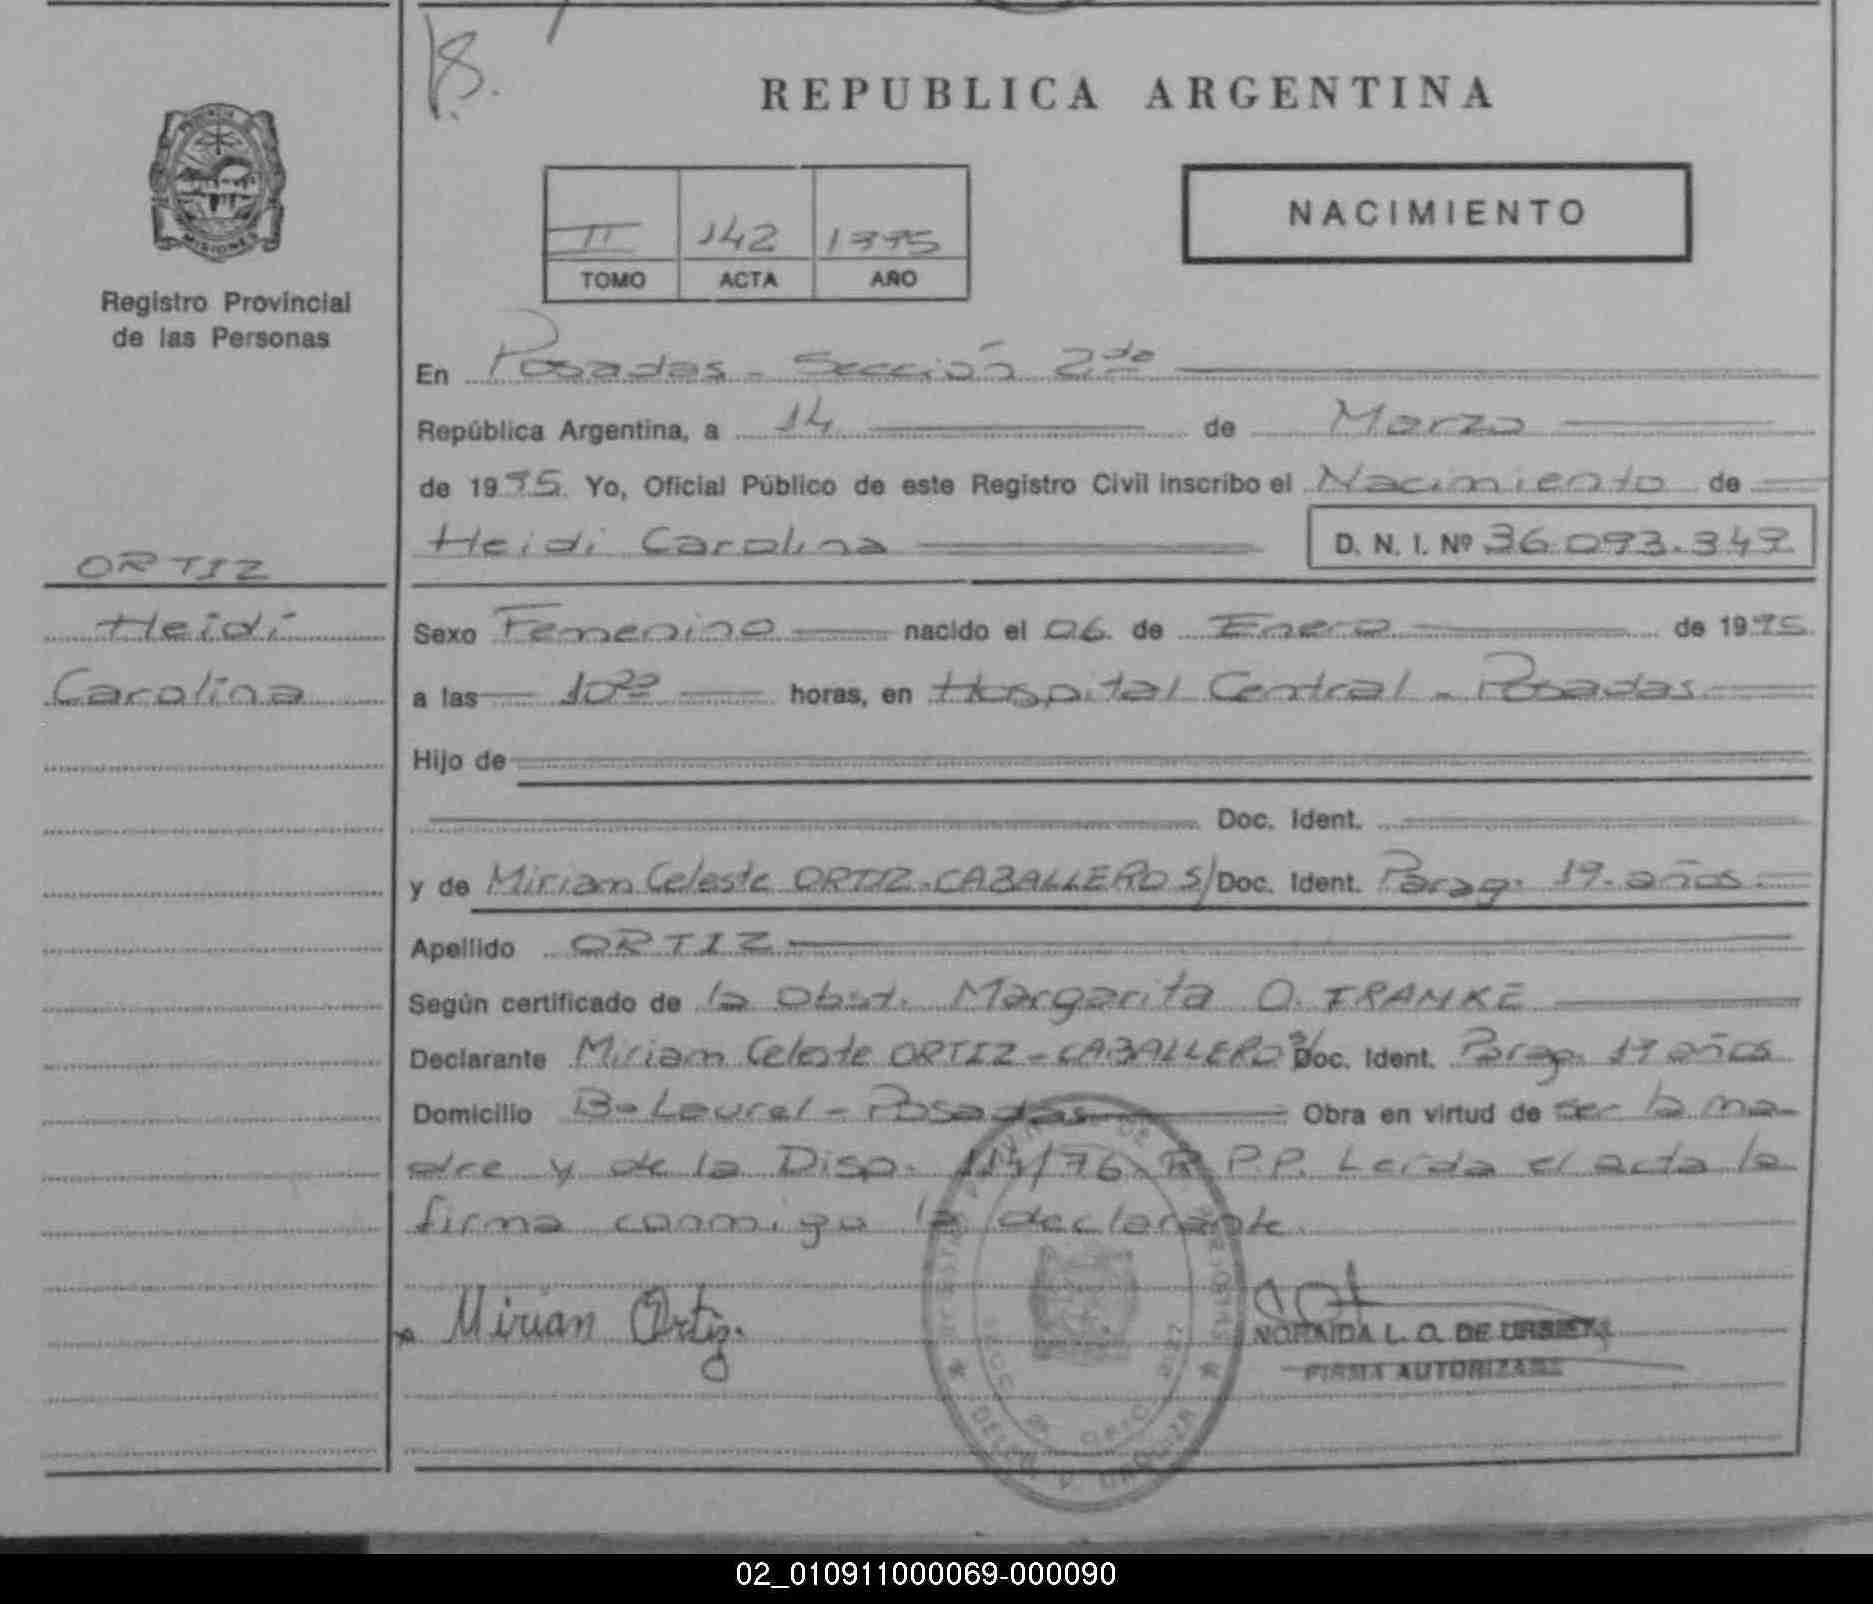 18.
REPUBLICA ARGENTINA
MISIONES
Registro Provincial
de las Personas
II 142 1995
TOMO ACTA AÑO
NACIMIENTO
En Posadas - Sección 2da
República Argentina, a 14 de Marzo
de 1995 Yo, Oficial Público de este Registro Civil inscribo el Nacimiento de
Heidi Carolina D. N. I. Nº 36.093.349
ORTIZ
Heidi
Carolina
Sexo Femenino nacido el 06 de Enero de 1995
a las 10 horas, en Hospital Central - Posadas
Hijo de
Doc. Ident.
y de Miriam Celeste ORTIZ-CABALLERO S/Doc. Ident. Parag. 19. años.
Apellido ORTIZ
Según certificado de la Obst. Margarita O. FRANKE
Declarante Miriam Celeste ORTIZ-CABALLERO S/Doc. Ident. Parag. 19 años
Domicilio Bº Laurel - Posadas Obra en virtud de ser la ma-
dre y de la Disp. 114/76. R.P.P. Leída el acta la
firma conmigo la declarante.
Mirian Ortiz.
NORAIDA L. O. DE
FIRMA AUTORIZADA
02_010911000069-000090